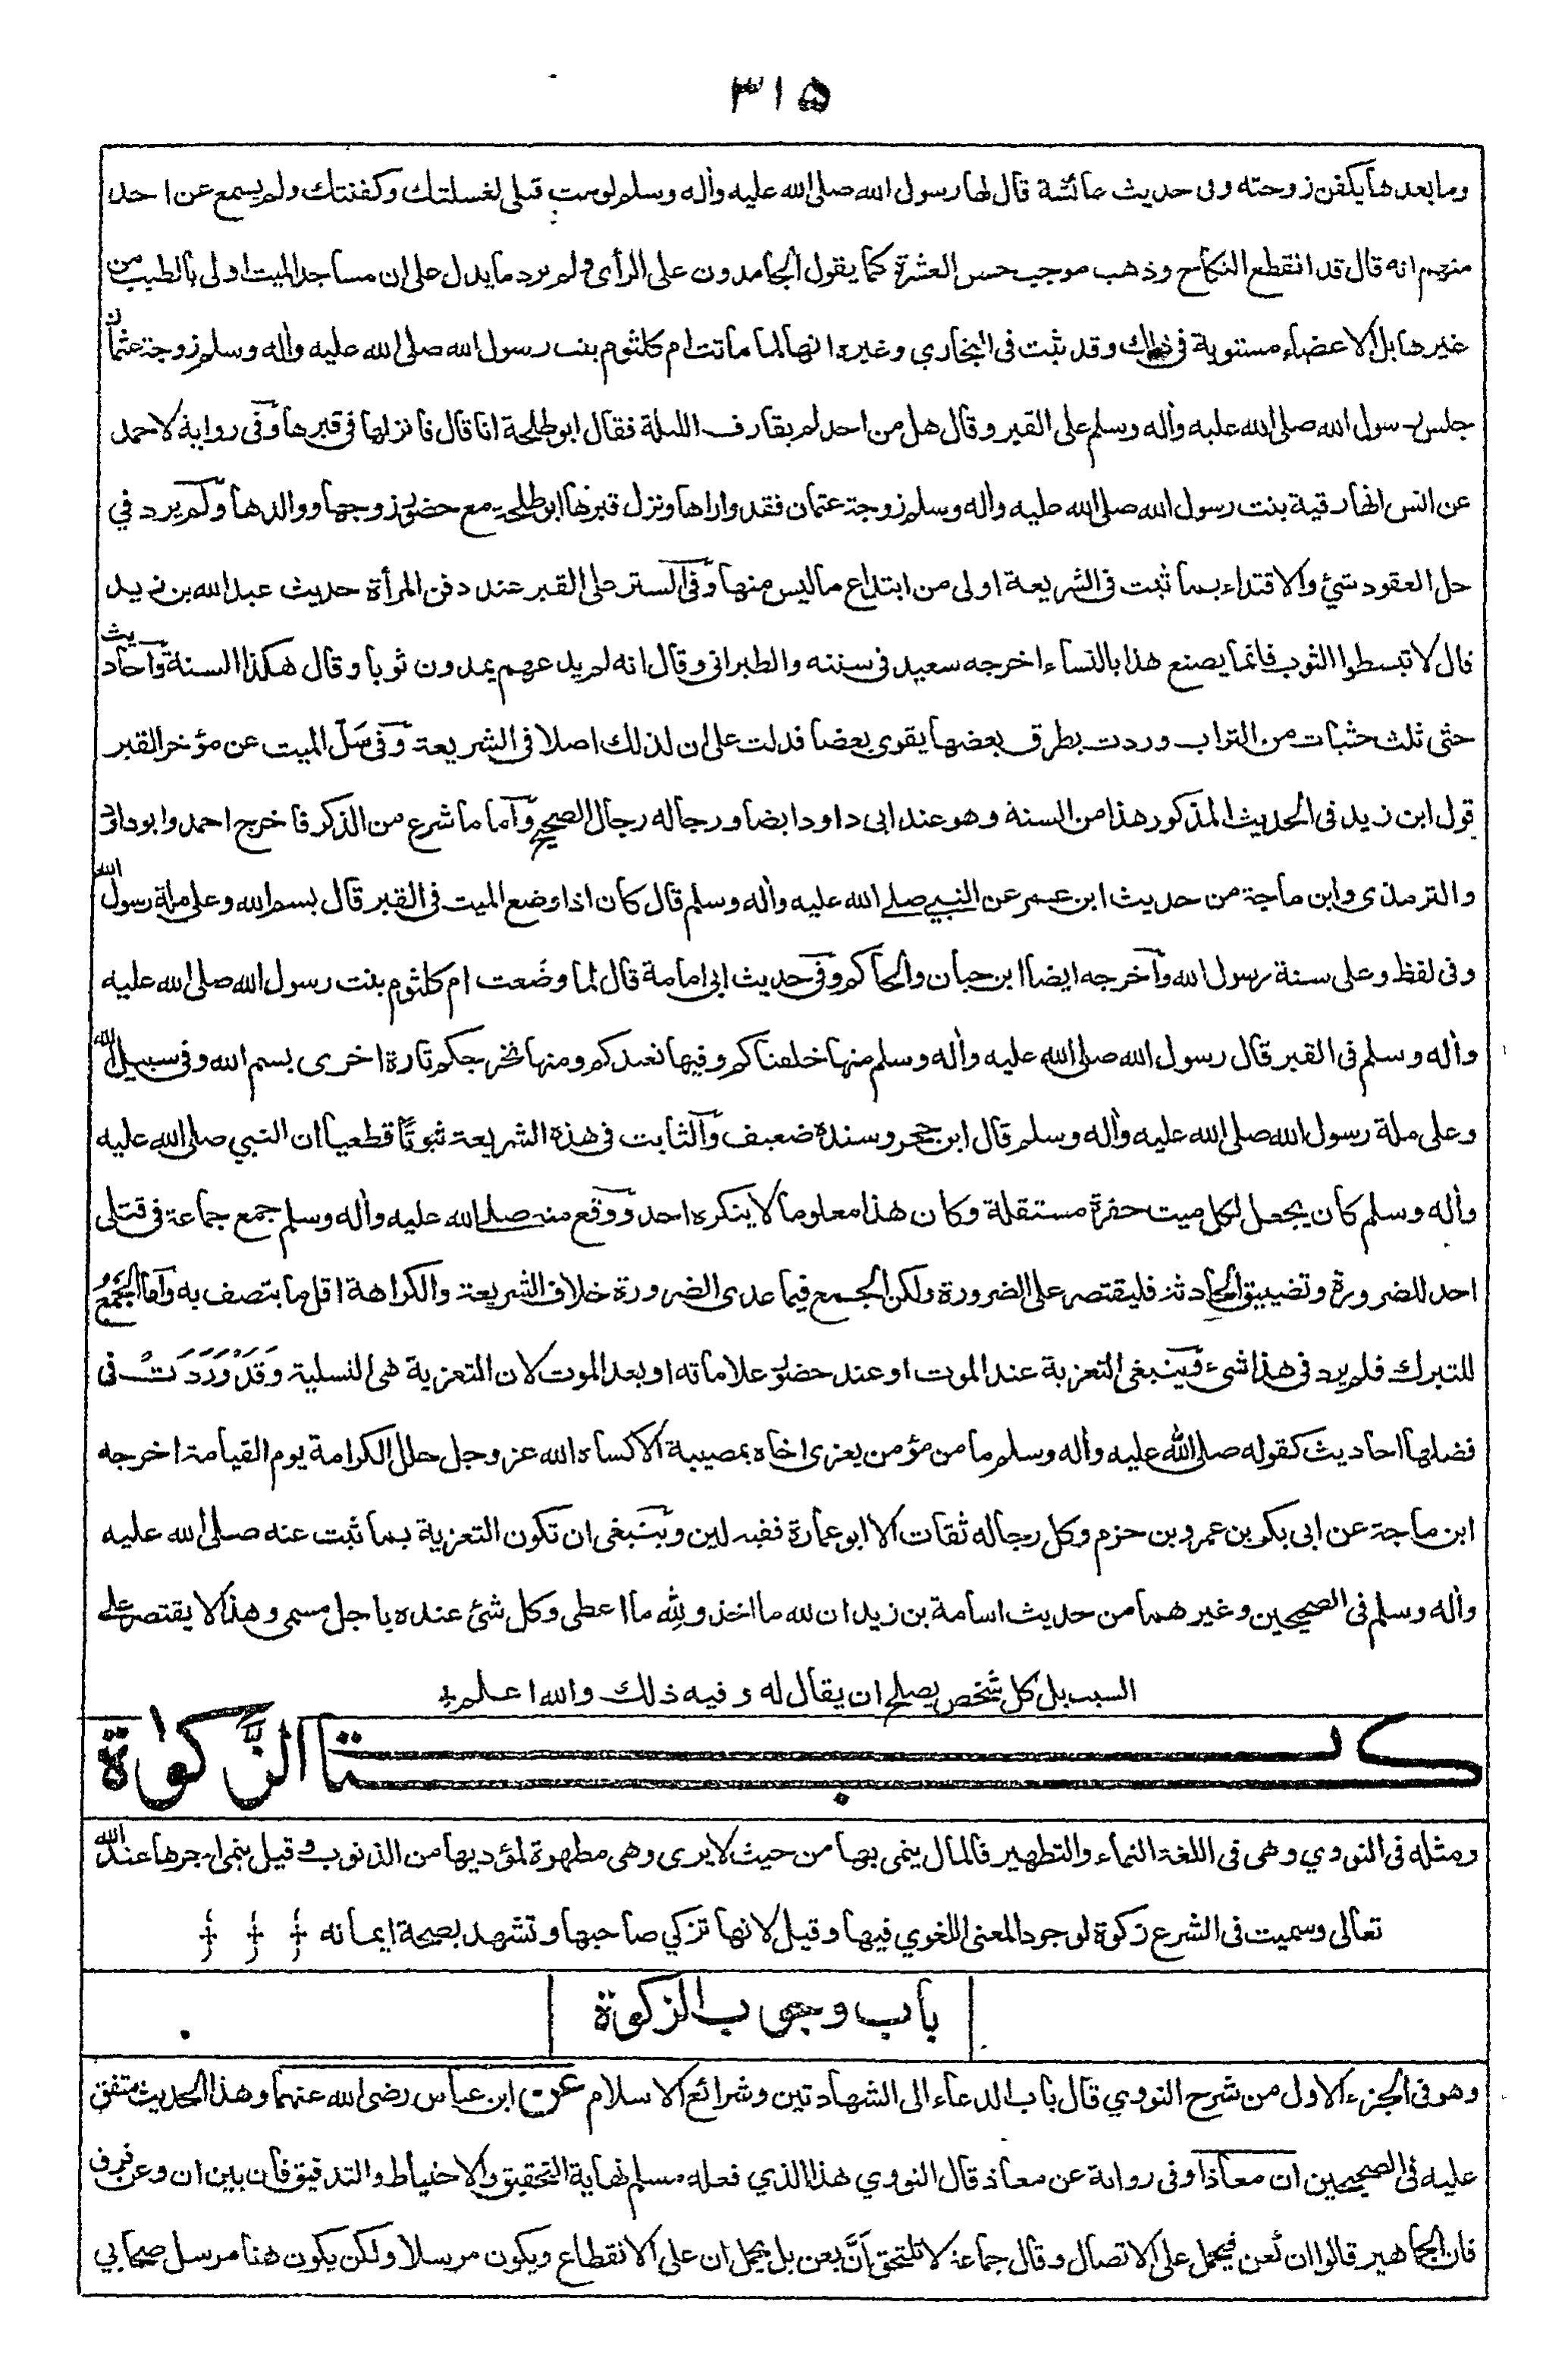 ٣١٥
وما بعدها يكفن زوجته وفى حديث عائشة قال لها رسول الله صلى الله عليه وأله وسلم لو مت قبلى لغسلتك وكفنتك ولم يسمع عن احد
منهم انه قال قد انقطع النكاح وذهب موجب حسن العشرة كما يقول الجامدون على الرأى ولم يرد ما يدل على ان مساجد الميت اولى بالطيب من
غيرها بل الاعضاء مستوية فى ذلك وقد ثبت فى البخاري وغيره انها لما ماتت ام كلثوم بنت رسول الله صلى الله عليه وأله وسلم زوجة عثمان
جلس رسول الله صلى الله عليه وأله وسلم على القبر وقال هل من احد لم يقارف الليلة فقال ابو طلحة انا قال فانزلها فى قبرها وفى رواية لاحمد
عن انس انها رقية بنت رسول الله صلى الله عليه وأله وسلم زوجة عثمان فقد واراها ونزل قبرها ابو طلحة مع حضور زوجها ووالدها ولم يرد في
حل العقود شئ والاقتداء بما ثبت فى الشريعة اولى من ابتداع ما ليس منها وفى الستر على القبر عند دفن المرأة حديث عبد الله بن زيد
قال لا تبسطوا الثوب فانما يصنع هذا بالنساء اخرجه سعيد فى سننه والطبرانى وقال انه لم يدعهم يمدون ثوبا وقال هكذا السنة واحاديث
حثى ثلث حثيات من التراب وردت بطرق بعضها يقوى بعضا فدلت على ان لذلك اصلا فى الشريعة وفى سَلّ الميت عن مؤخر القبر
قول ابن زيد فى الحديث المذكور هذا من السنة وهو عند ابى داود ايضا ورجاله رجال الصحيح وأما ما شرع من الذكر فاخرج احمد وابوداؤد
والترمذى وابن ماجة من حديث ابن عمر عن النبي صلى الله عليه وأله وسلم قال كان اذا وضع الميت فى القبر قال بسم الله وعلى ملة رسول الله
وفى لفظ وعلى سنة رسول الله وأخرجه ايضا ابن حبان والحاكم وفى حديث ابى امامة قال لما وضعت ام كلثوم بنت رسول الله صلى الله عليه
وأله وسلم فى القبر قال رسول الله صلى الله عليه وأله وسلم منها خلقناكم وفيها نعيدكم ومنها نخرجكم تارة اخرى بسم الله وفى سبيل الله
وعلى ملة رسول الله صلى الله عليه وأله وسلم قال ابن حجر وسنده ضعيف والثابت فى هذه الشريعة ثبوتًا قطعيا ان النبي صلى الله عليه
وأله وسلم كان يجعل لكل ميت حفرة مستقلة وكان هذا معلوما لا ينكره احد ووقع منه صلى الله عليه وأله وسلم جمع جماعة فى قتلى
احد للضرورة وتضييق الحادثة فليقتصر على الضرورة ولكن الجمع فيما عدى الضرورة خلاف الشريعة والكراهة اقل ما يتصف به وأما الجَمْعُ
للتبرك فلم يرد فى هذا شئ فينبغى التعزية عند الموت او عند حضور علاماته او بعد الموت لان التعزية هى التسلية وَقَدْ وَرَدَتْ فى
فضلها احاديث كقوله صلى الله عليه وأله وسلم ما من مؤمن يعزى اخاه بمصيبة الا كساه الله عز وجل حلل الكرامة يوم القيامة اخرجه
ابن ماجة عن ابى بكر بن عمرو بن حزم وكل رجاله ثقات الا ابو عمارة ففيه لين وينبغى ان تكون التعزية بما ثبت عنه صلى الله عليه
وأله وسلم فى الصحيحين وغيرهما من حديث اسامة بن زيد ان لله ما اخذ ولله ما اعطى وكل شئ عنده باجل مسمى وهذا لا يقتصر على
السبب بل كل شخص يصلح ان يقال له وفيه ذلك والله اعلم
كتاب الزَّكوٰة
ومثله فى النووي وهى فى اللغة النماء والتطهير فالمال ينمى بها من حيث لا يرى وهى مطهرة لمؤديها من الذنوب وقيل ينمى اجرها عند الله
تعالى وسميت فى الشرع زكوة لوجود المعنى اللغوي فيها وقيل لانها تزكي صاحبها وتشهد بصحة ايمانه
باب وجوب الزكوة
وهو فى الجزء الاول من شرح النووي قال باب الدعاء الى الشهادتين وشرائع الاسلام عن ابن عباس رضى الله عنهما وهذا الحديث متفق
عليه فى الصحيحين ان معاذا وفى رواية عن معاذ قال النووي هذا الذي فعله مسلم نهاية التحقيق والاحتياط والتدقيق فان بين ان وعن فرق
فان الجماهير قالوا ان كَعن فيحمل على الاتصال وقال جماعة لا تلتحق اَنَّ بعن بل يحمل ان على الانقطاع ويكون مرسلا ولكن يكون هنا مرسل صحابي